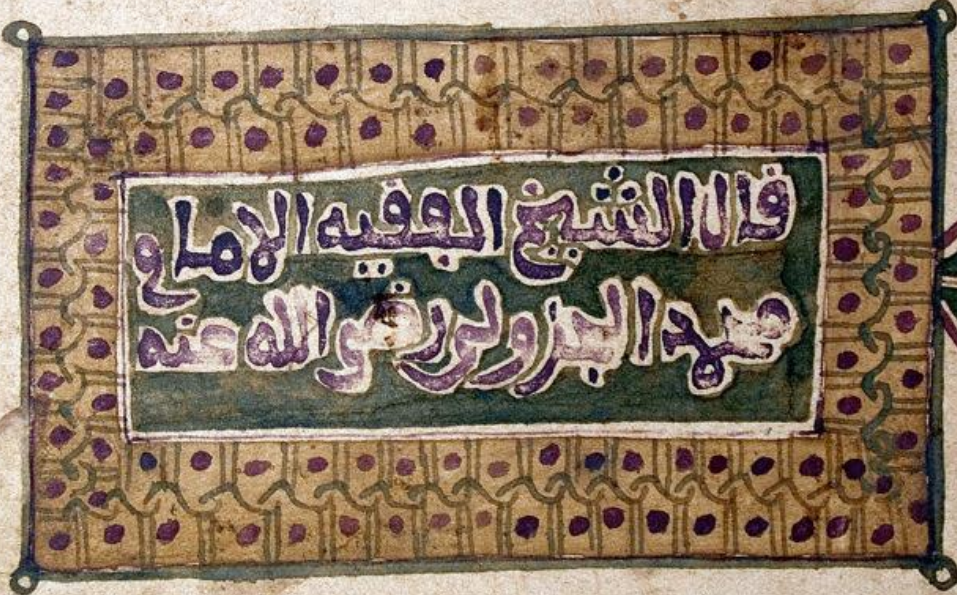 قال الشيخ الفقيه الامام
محمد الجزولي رضي الله عنه